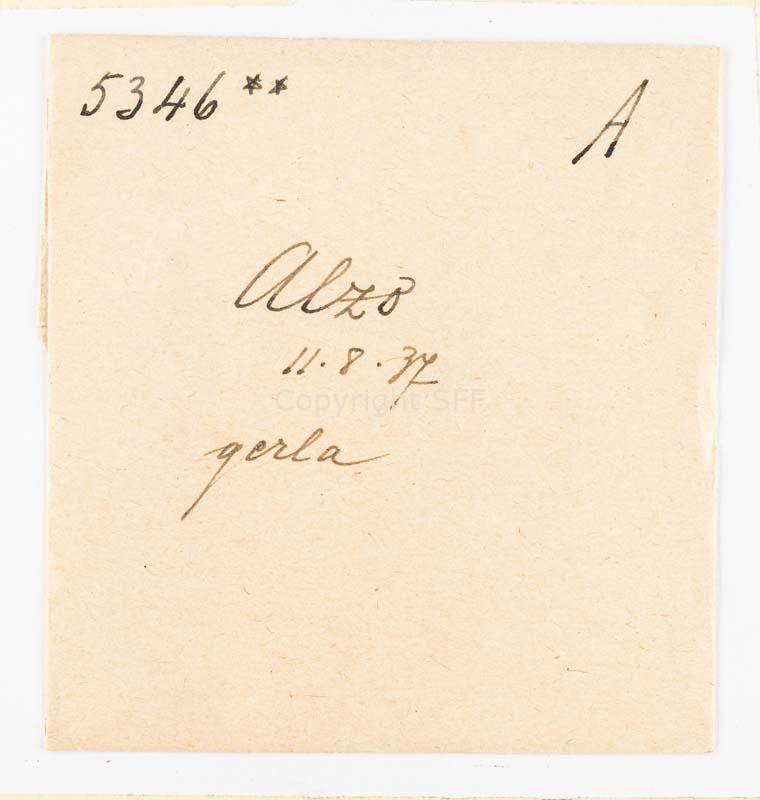 5346** A
Alzo
11.8.37
Copyright SFF
gerla